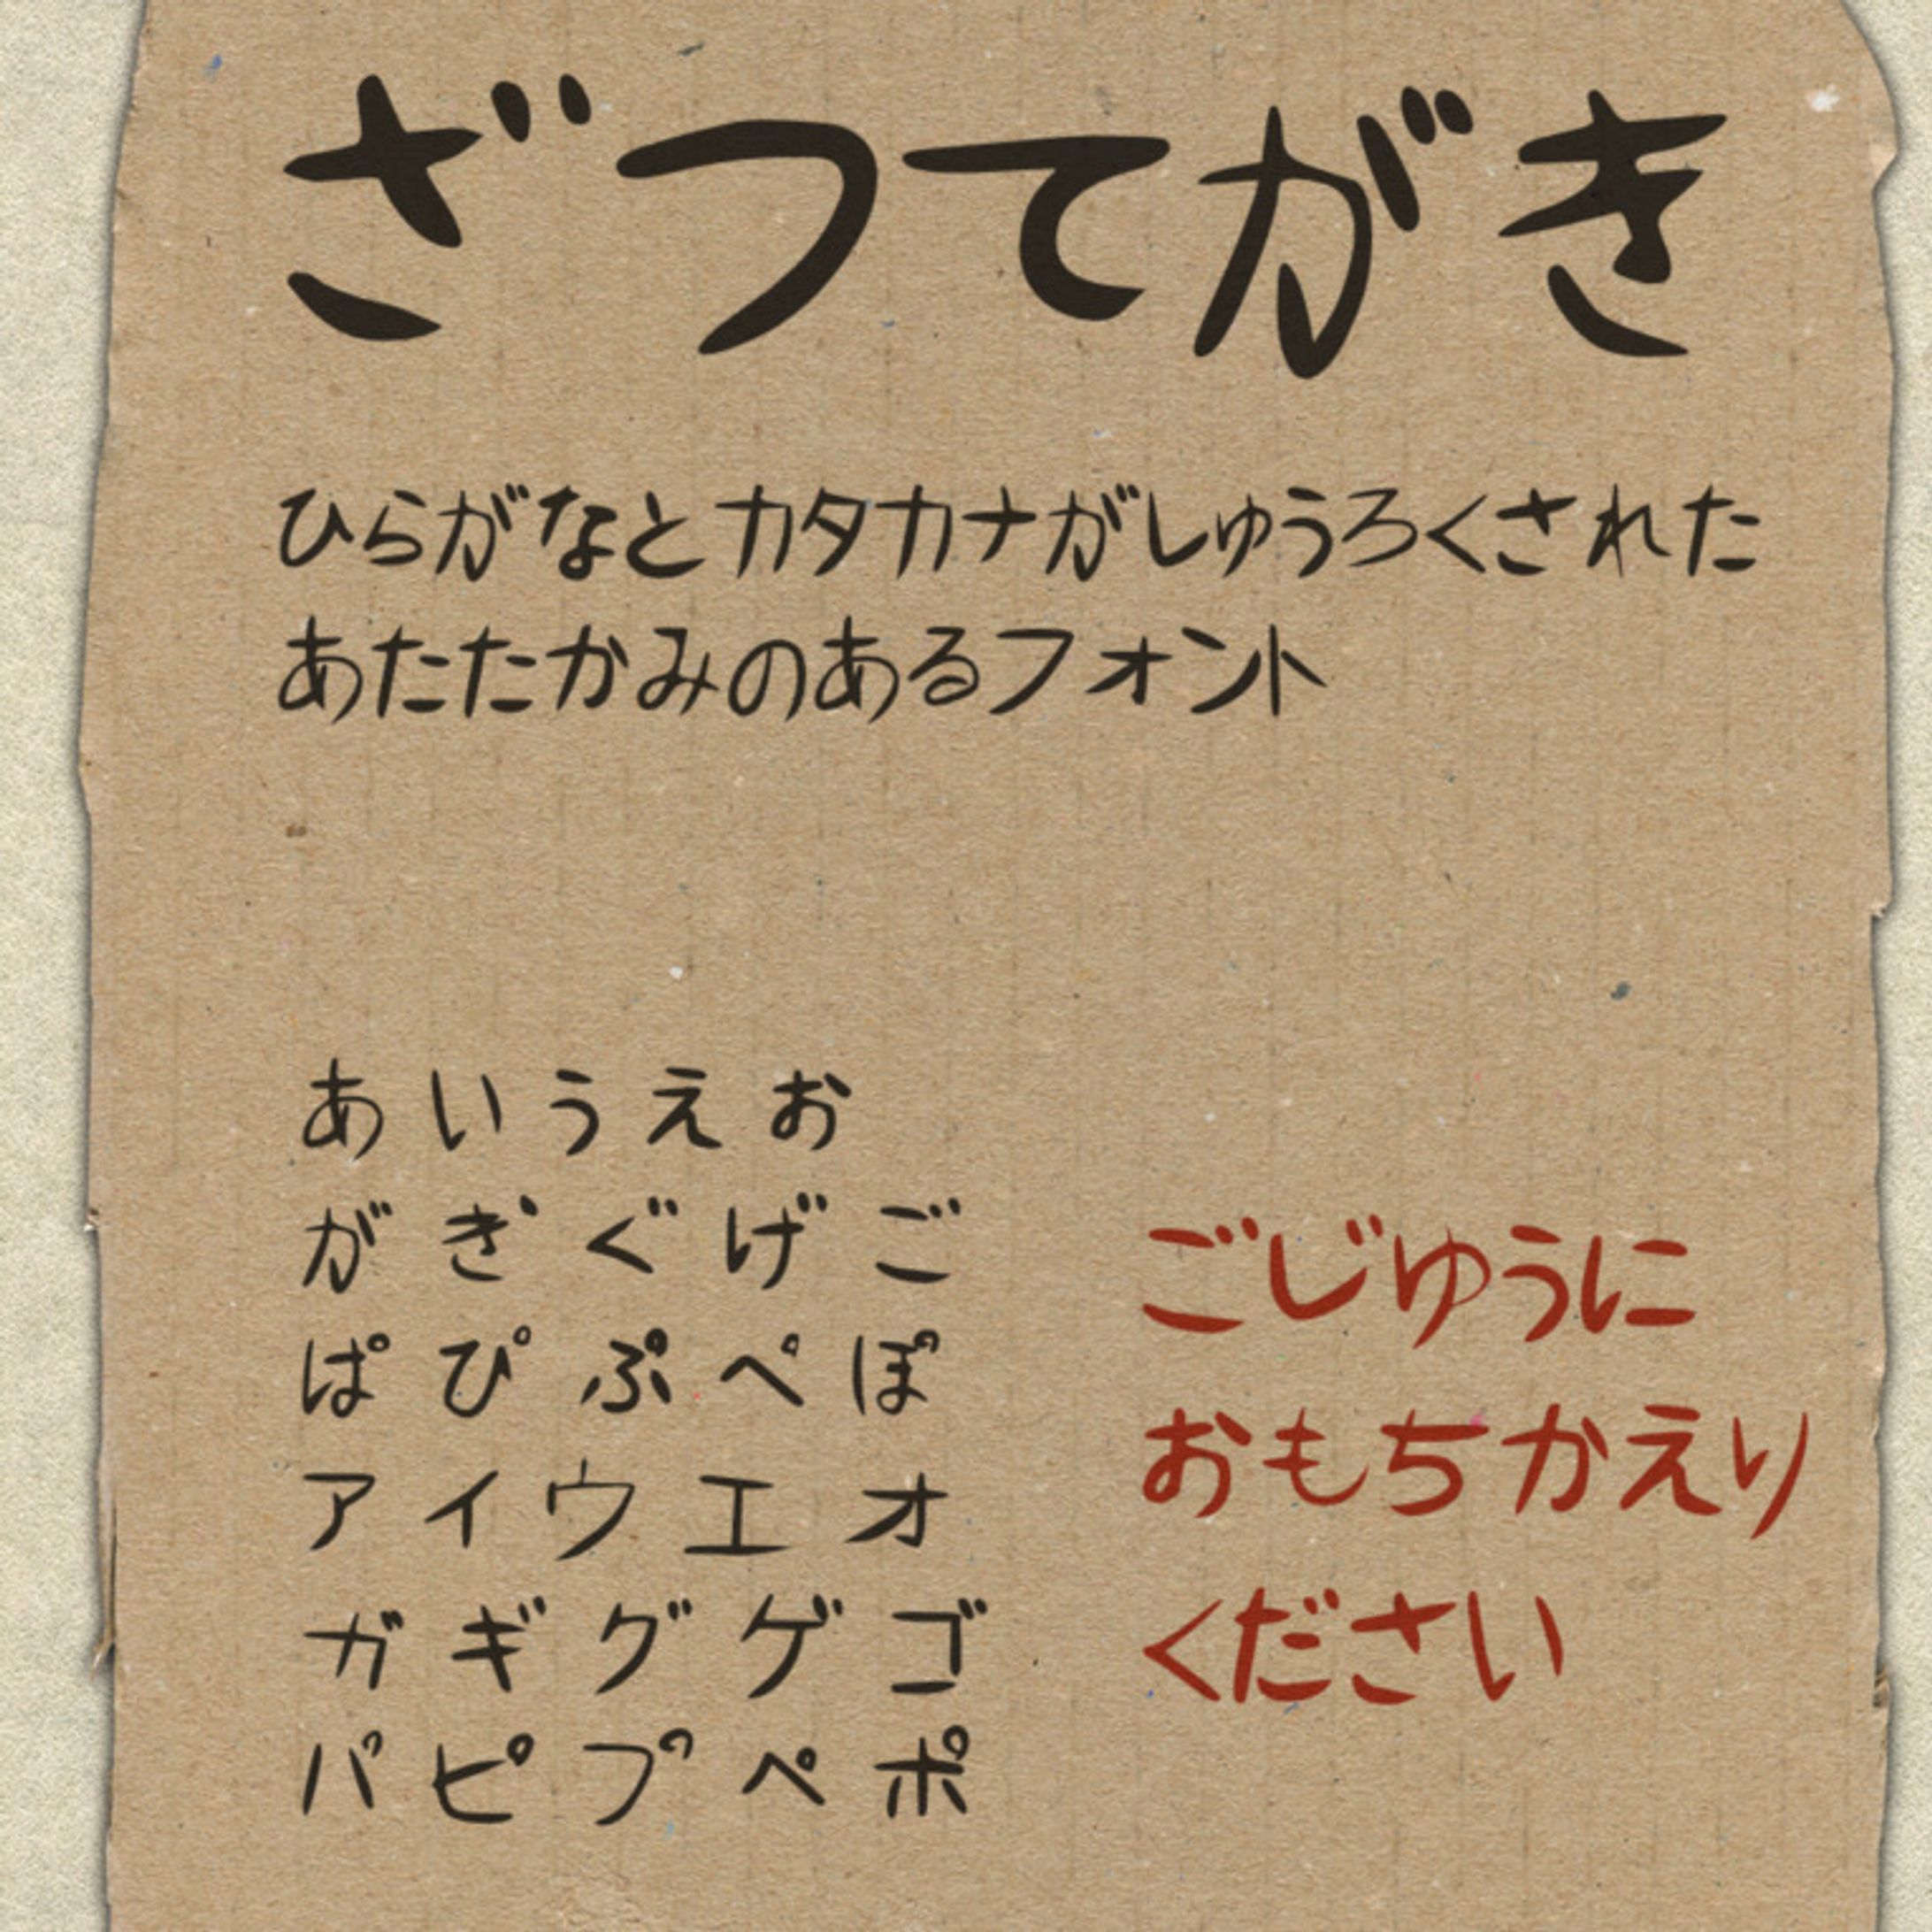 ざつてがき
ひらがなとカタカナがしゅうろくされた
あたたかみのあるフォント
あ い う え お
が ぎ ぐ げ ご
ぱ ぴ ぷ ぺ ぽ
ア イ ウ エ オ
ガ ギ グ ゲ ゴ
パ ピ プ ペ ポ
ごじゆうに
おもちかえり
ください